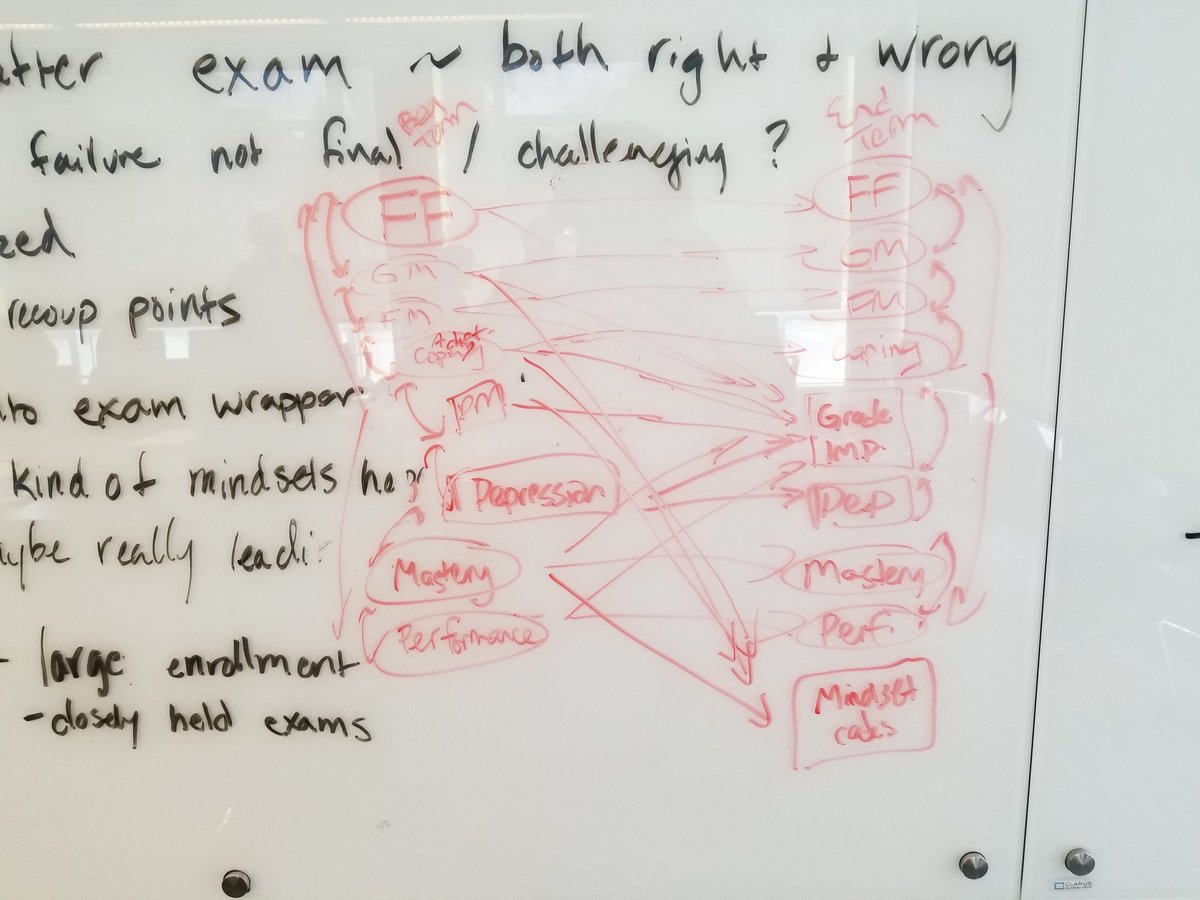 atter exam ~ both right + wrong
Beg Term
End Term
failure not final / challenging ?
FF
FF
zed
GM
GM
recoup points
FM
FM
Adapt.
Coping
Coping
into exam wrapper
PM
Grade
IMP.
kind of mindsets
Depression
Dep
maybe really leadi
Mastery
Mastery
Performance
Perf.
- large enrollment
- closely held exams
Mindset
codes
CLARUS